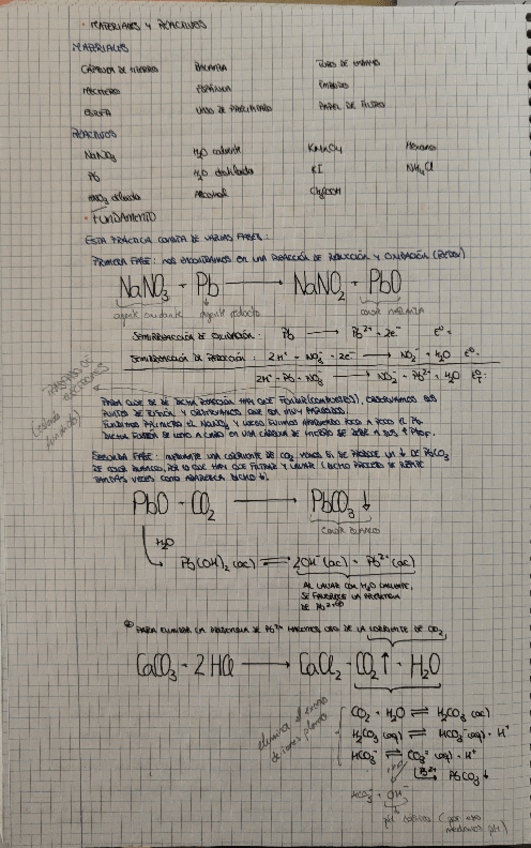 · MATERIALES Y REACTIVOS
MATERIALES
CÁPSULA DE HIERRO BALANZA TUBO DE ENSAYO
MECHERO ESPÁTULA EMBUDO
VASO DE PRECIPITADO PAPEL DE FILTRO
REACTIVOS
NaNO3 H2O caliente KMnO4
Pb H2O destilada KI NH4Cl
HNO3 diluido Alcohol
· FUNDAMENTO
ESTA PRÁCTICA CONSTA DE VARIAS FASES:
PRIMERA FASE: NOS ENCONTRAMOS EN UNA REACCIÓN DE REDUCCIÓN Y OXIDACIÓN (REDOX)
NaNO3 + Pb → NaNO2 + PbO
agente oxidante agente reductor COLOR NARANJA
SEMIRREACCIÓN DE OXIDACIÓN: Pb → Pb2+ + 2e- Eº =
SEMIRREACCIÓN DE REDUCCIÓN: 2H+ + NO3- + 2e- → NO2- + H2O Eº=
2H+ + Pb + NO3- → NO2- + Pb2+ + H2O
PARA QUE SE DÉ DICHA REACCIÓN HAY QUE FUNDIR (COMPUESTOS), OBSERVAMOS SUS
PUNTOS DE FUSIÓN Y OBTENEMOS QUE SON MUY
FUNDIMOS PRIMERO EL NaNO3 Y LUEGO VAMOS AÑADIENDO POCO A POCO EL Pb
DICHA FUSIÓN SE LLEVA A CABO EN UNA CÁPSULA DE HIERRO SE DEBE A SUS ↑
SEGUNDA FASE: MEDIANTE UNA CORRIENTE DE CO2 SE PRODUCE UN ↓ DE PbCO3
DE COLOR BLANCO, POR LO QUE HAY QUE FILTRAR Y LAVAR (DICHO PROCESO SE REPITE
TANTAS VECES COMO APAREZCA DICHO ↓).
PbO + CO2 → PbCO3 ↓
COLOR BLANCO
H2O
Pb(OH)2 (ac) ⇌ 2OH-(ac) + Pb2+(ac)
AL LAVAR CON H2O CALIENTE,
SE FAVORECE LA PRESENCIA
DE Pb2+
PARA ELIMINAR LA PRESENCIA DE Pb2+ HACEMOS USO DE LA CORRIENTE DE CO2
CaCO3 + 2HCl → CaCl2 + CO2↑ + H2O
CO2 + H2O ⇌ H2CO3 (ac)
elimina el exceso de iones plomo
H2CO3 (aq) ⇌ HCO3-(aq) + H+
HCO3- ⇌ CO3= (aq) + H+
Pb2+ → PbCO3↓
HCO3- + OH-